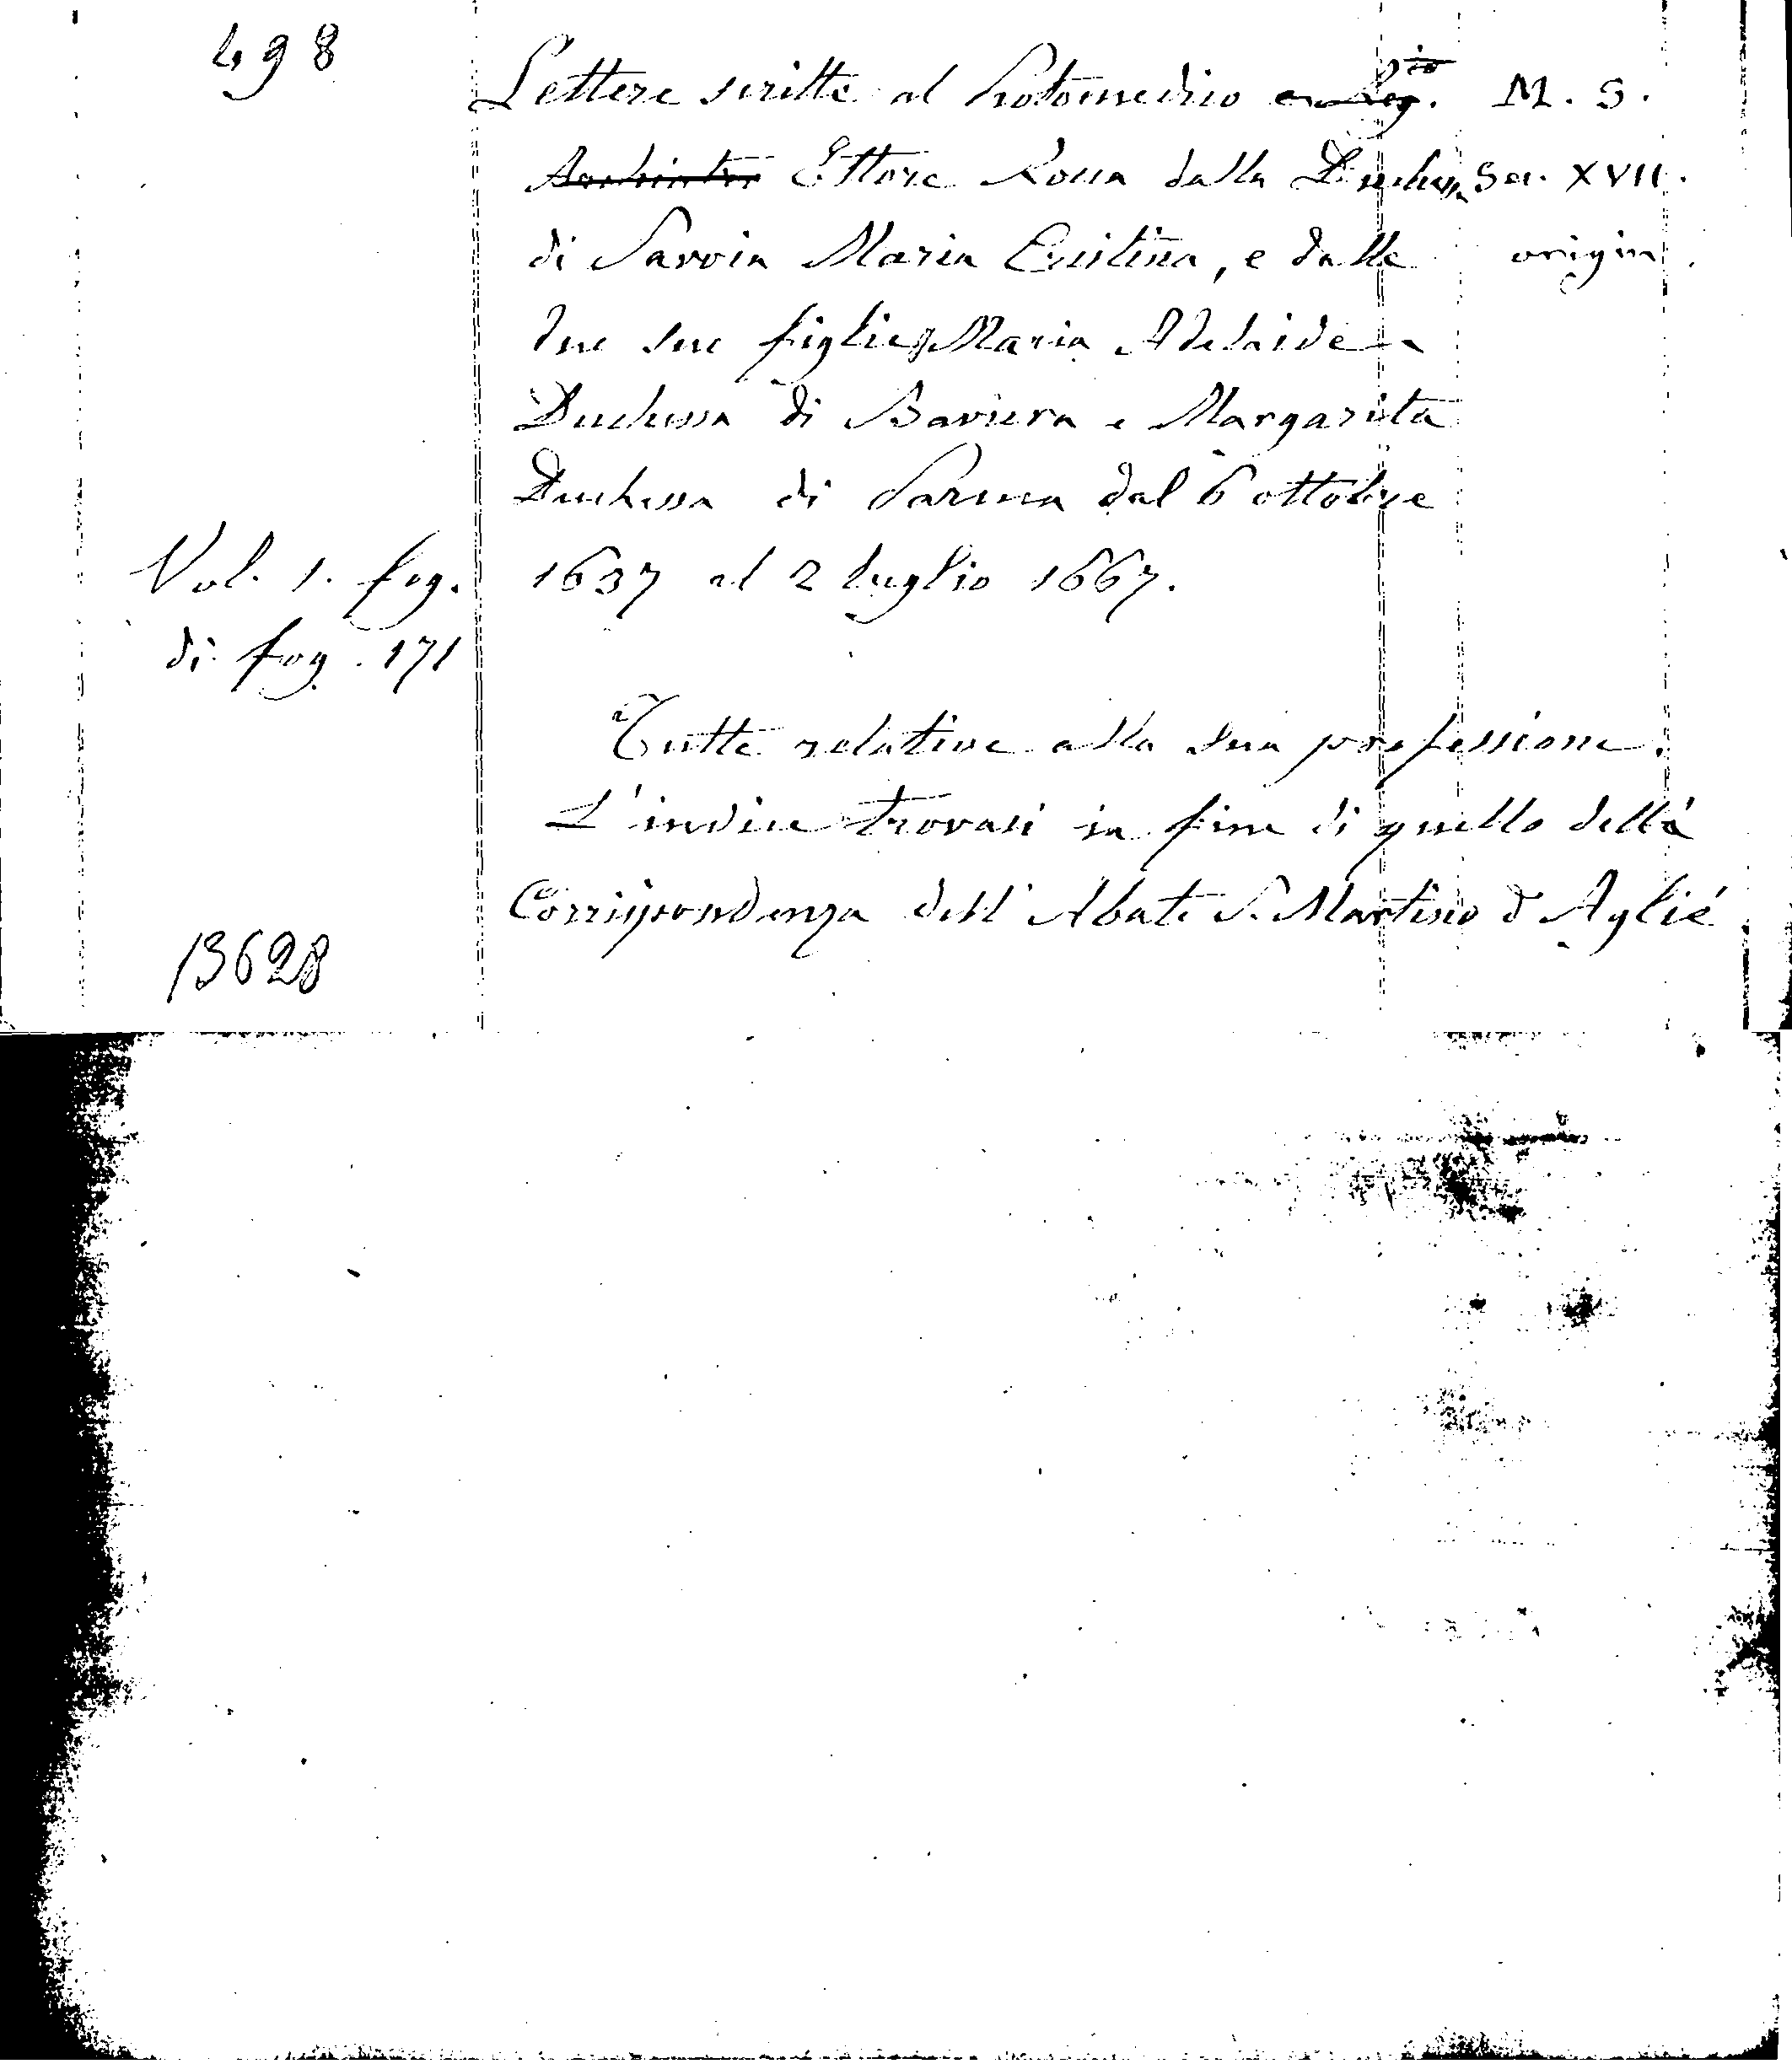 498
Lettere scritte al Protomedico M. S.
Archiatro Ettore Rocca dalla Duchessa Sec. XVII.
di Savoia Maria Cristina, e dalle origin.
due sue figlie Maria Adelaide
Duchessa di Baviera e Margarita
Duchessa di Parma dal 6 ottobre
Vol. 1. fog. 1637 al 2 luglio 1667.
di fog. 171
Tutte relative alla sua professione.
L'indice trovasi in fine di quello della
Corrispondenza dell'Abate S. Martino d'Aglié
13628